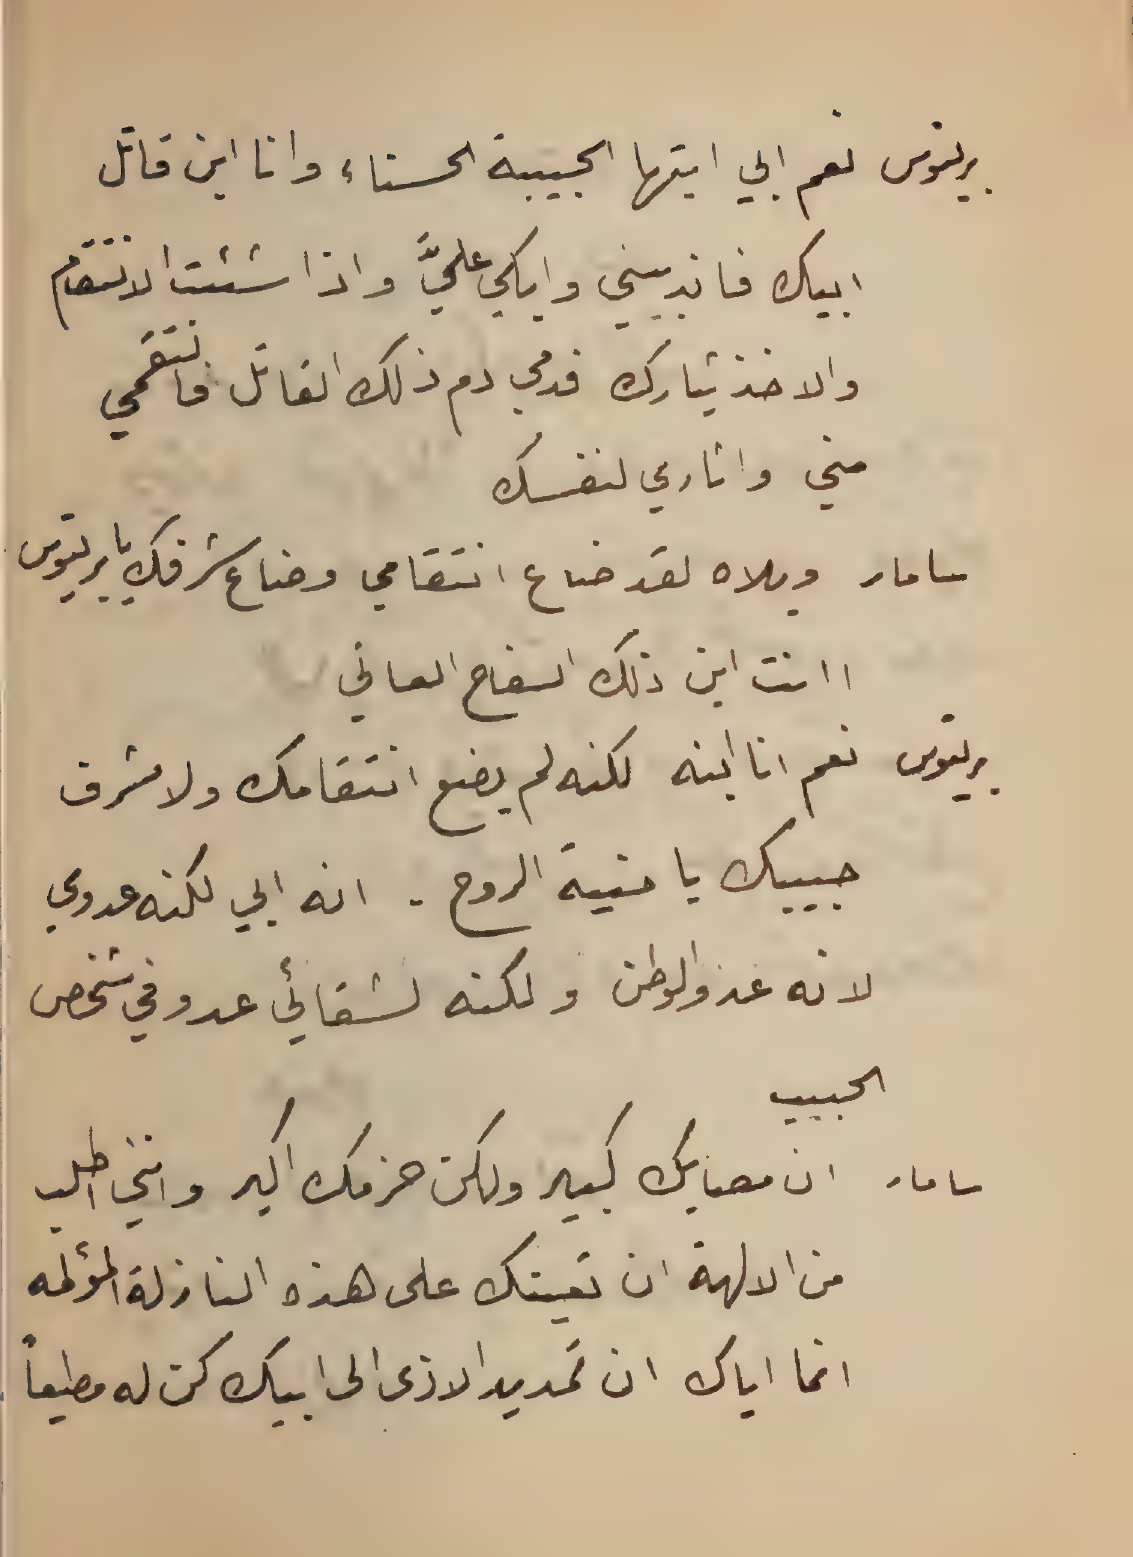 بريتوس نعم ابي ايتها الحبيبة الحسناء وانا ابن قاتل
ابيك فاندبيني وابكي عليَّ واذا شئت الانتقام
والاخذ بثارك فدمي دم ذلك القاتل فانتقمي
مني واثاري لنفسك
سامار ويلاه لقد ضاع انتقامي وضاع شرفك يا بريتوس
اانت ابن ذلك السفاح العاتي
بريتوس نعم انا ابنه لكنه لم يضع انتقامك ولا شرف
حبيبك يا منية الروح . انه ابي لكنه عدوي
لانه عدو الوطن ولكنه لشقائي عدو في شخص
الحبيب
سامار ان مصابك كبير ولكن حزمك اكبر وانني اطلب
من الالهة ان تعينك على هذه النازلة المؤلمه
انما اياك ان تمد يد الاذى الى ابيك كن له مطيعاً